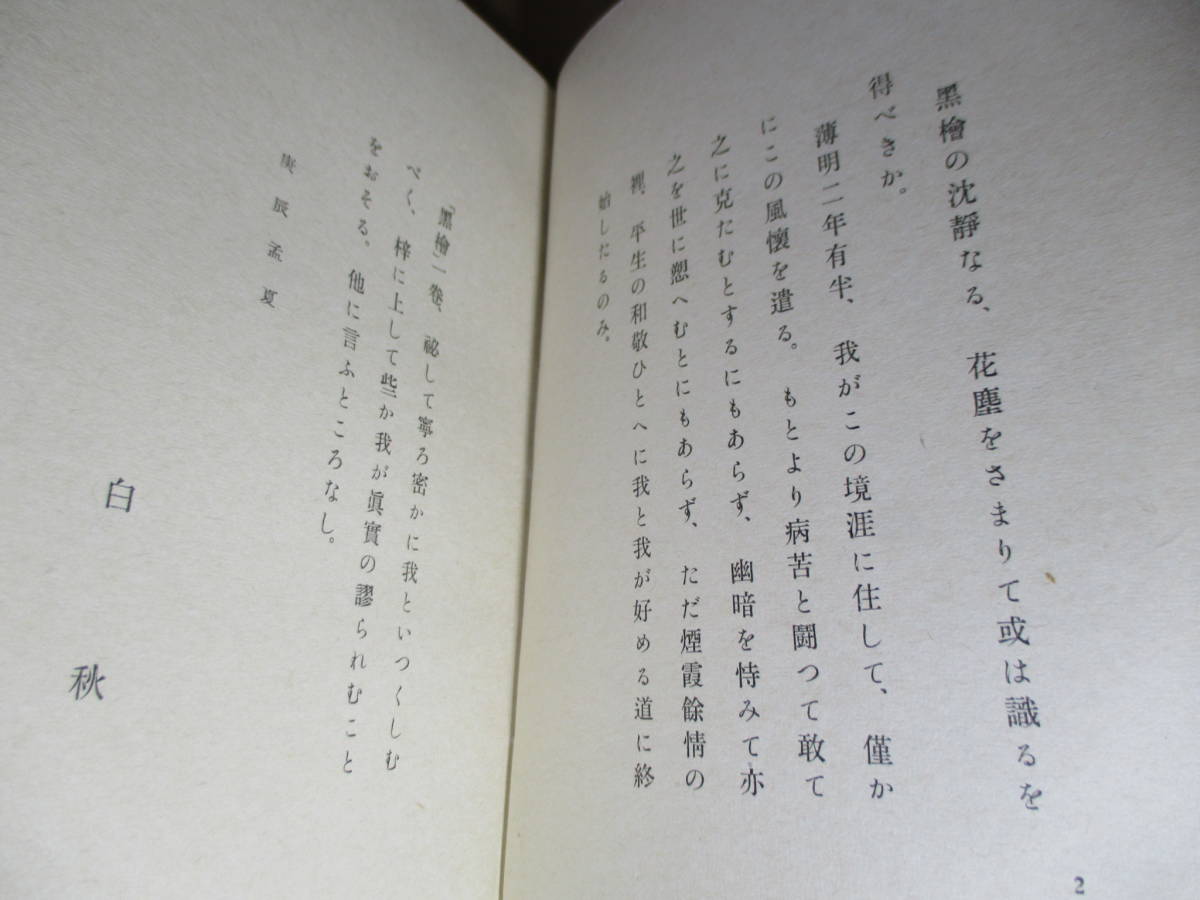 黑檜の沈靜なる、花塵をさまりて或は識るを
得べきか。
薄明二年有半、我がこの境涯に住して、僅か
にこの風懷を遣る。もとより病苦と鬪つて敢て
之に克たむとするにもあらず、幽暗を恃みて亦
之を世に愬へむとにもあらず、ただ煙霞餘情の
裡、平生の和敬ひとへに我と我が好める道に終
始したるのみ。
2
「黑檜」一卷、祕して寧ろ密かに我といつくしむ
べく、梓に上して些か我が眞實の謬られむこと
をおそる。他に言ふところなし。
庚辰孟夏
白秋